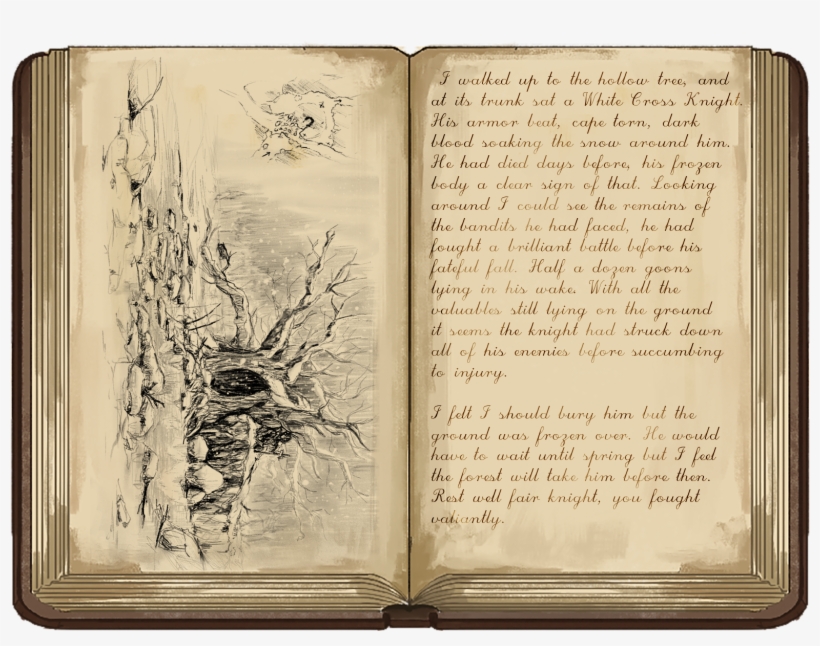 I walked up to the hollow tree, and
at its trunk sat a White Cross Knight.
His armor beat, cape torn, dark
blood soaking the snow around him.
He had died days before, his frozen
body a clear sign of that. Looking
around I could see the remains of
the bandits he had faced, he had
fought a brilliant battle before his
fateful fall. Half a dozen goons
lying in his wake. With all the
valuables still lying on the ground
it seems the knight had struck down
all of his enemies before succumbing
to injury.
I felt I should bury him but the
ground was frozen over. He would
have to wait until spring but I feel
the forest will take him before then.
Rest well fair knight, you fought
valiantly.